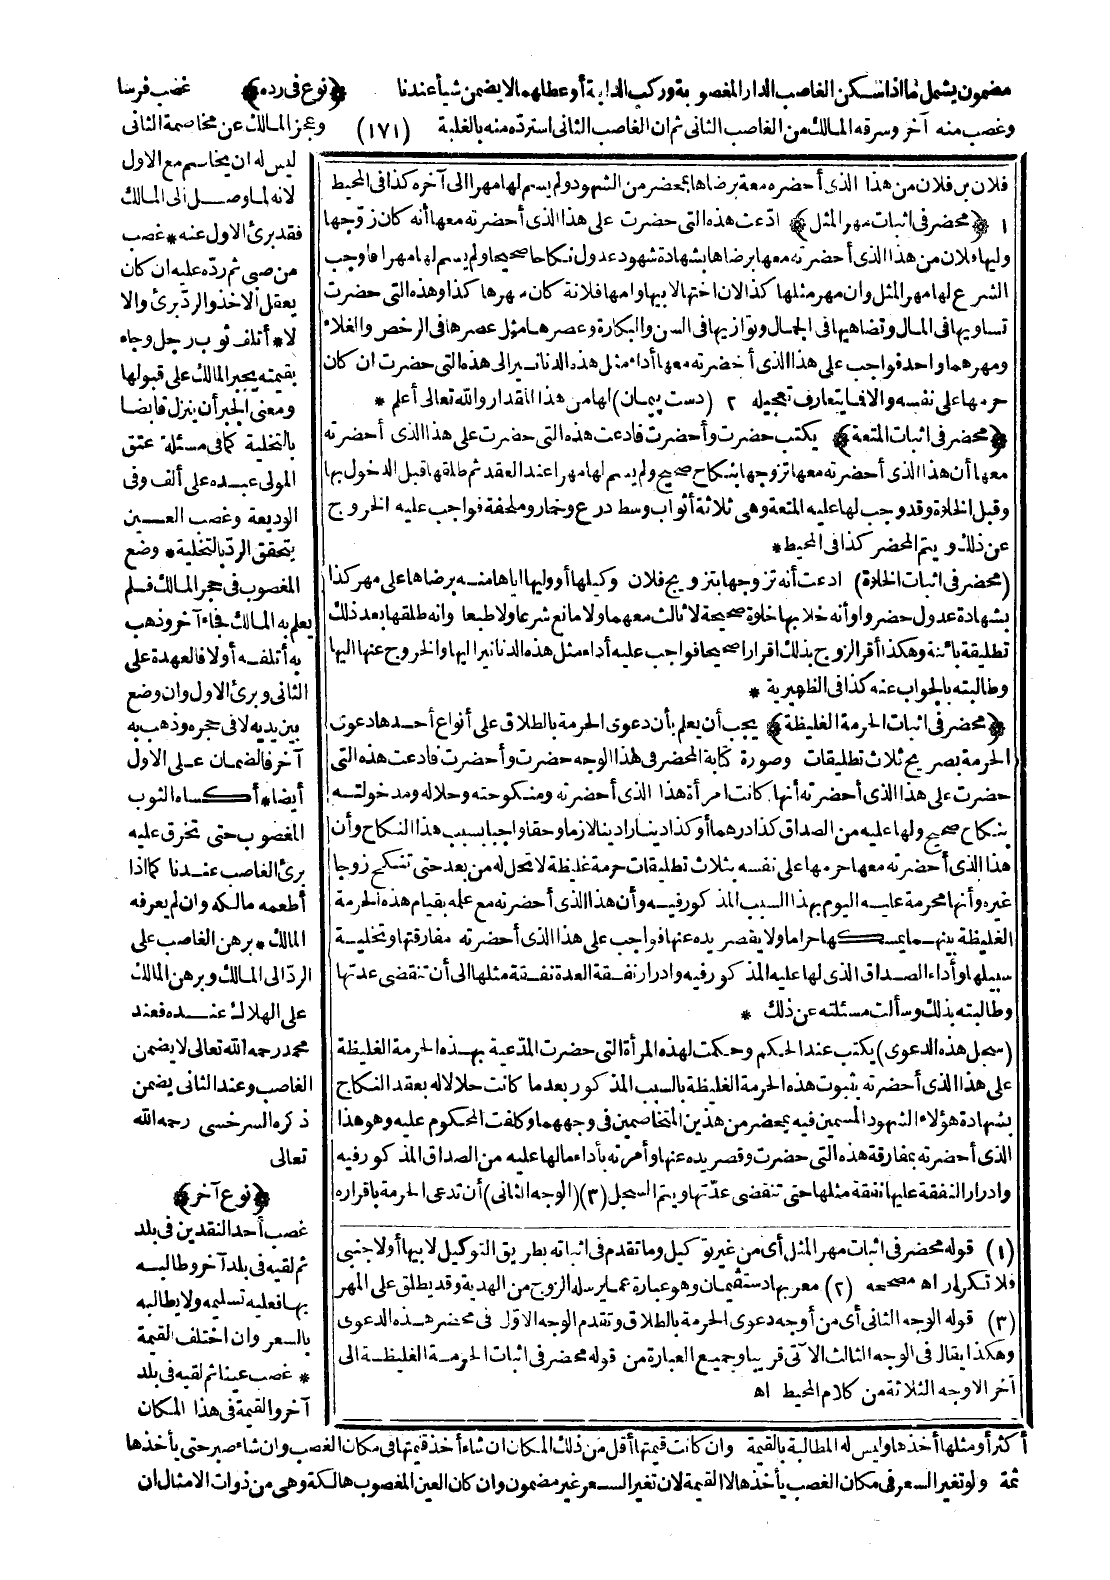 مضمون يشمل ما اذا سكن الغاصب الدار المغصوبة وركب الدابة أو عطلهما لا يضمن شيأ عندنا ﴿نوع فى رده﴾ غصب فرسا
وغصب منه آخر وسرقه المالك من الغاصب الثانى ثم ان الغاصب الثانى استرده منه بالغلبة (١٧١) وعجز المالك عن مخاصمة الثانى
ليس له ان يخاصم مع الاول
لانه لما وصل الى المالك
فقد برئ الاول عنه * غصب
من صبى ثم رده عليه ان كان
يعقل الاخذ والرد برئ والا
لا * أتلف ثوب رجل وجاء
بقيمته يجبر المالك على قبولها
ومعنى الجبر أن ينزل قابضا
بالتخلية كما فى مسئلة عتق
المولى عبده على ألف وفى
الوديعة وغصب العين
يتحقق الرد بالتخلية * وضع
المغصوب فى حجر المالك فلم
يعلم به المالك فجاء آخر وذهب
به أتلفه أولا فالعهدة على
الثانى وبرئ الاول وان وضع
بين يديه لا فى حجره وذهب به
آخر فالضمان على الاول
أيضا * كساه الثوب
المغصوب حتى تخرق عليه
برئ الغاصب عندنا كما اذا
أطعمه مالكه وان لم يعرفه
المالك * برهن الغاصب على
الرد الى المالك وبرهن المالك
على الهلاك عنده فعند
محمد رحمه الله تعالى لا يضمن
الغاصب وعند الثانى يضمن
ذكره السرخسى رحمه الله
تعالى
﴿نوع آخر﴾
غصب أحد النقدين فى بلد
ثم لقيه فى بلد آخر وطالبه
بها فعليه تسليمه ولا يطالبه
بالسعر وان اختلف القيمة
* غصب عينا ثم لقيه فى بلد
آخر والقيمة فى هذا المكان
فلان بن فلان من هذا الذى أحضره معه برضاها بمحضر من الشهود ولم يسم لها مهرا الى آخره كذا فى المحيط
١ ﴿محضر فى اثبات مهر المثل﴾ ادعت هذه التى حضرت على هذا الذى أحضرته معها أنه كان زوجها
وليها فلان من هذا الذى أحضرته معها برضاها بشهادة شهود عدول نكاحا صحيحا ولم يسم لها مهرا فاوجب
الشرع لها مهر المثل وان مهر مثلها كذا لان اختها لابيها وامها فلانة كان مهرها كذا وهذه التى حضرت
تساويها فى المال وتضاهيها فى الجمال وتوازيها فى السن والبكارة وعصرها مثل عصرها فى الرخص والغلاء
ومهرهما واحد فواجب على هذا الذى أحضرته معها أداء مثل هذه الدنانير الى هذه التى حضرت ان كان
حرمها على نفسه والا فما يتعارف تعجيله ٢ (دست پيمان) لها من هذا المقدار والله تعالى أعلم *
﴿محضر فى اثبات المتعة﴾ يكتب حضرت وأحضرت فادعت هذه التى حضرت على هذا الذى أحضرته
معها أن هذا الذى أحضرته معها تزوجها بنكاح صحيح ولم يسم لها مهرا عند العقد ثم طلقها قبل الدخول بها
وقبل الخلوة وقد وجب لها عليه المتعة وهى ثلاثة أثواب وسط درع وخمار وملحفة فواجب عليه الخروج
عن ذلك ويتم المحضر كذا فى المحيط *
(محضر فى اثبات الخلوة) ادعت أنه تزوجها بتزويج فلان وكيلها أو وليها اياها منه برضاها على مهر كذا
بشهادة عدول حضروا وأنه خلا بها خلوة صحيحة لا ثالث معهما ولا مانع شرعا ولا طبعا وانه طلقها بعد ذلك
تطليقة بائنة وهكذا أقر الزوج بذلك اقرارا صحيحا فواجب عليه أداء مثل هذه الدنانير اليها والخروج عنها اليها
وطالبته بالجواب عنه كذا فى الظهيرية *
﴿محضر فى اثبات الحرمة الغليظة﴾ يجب أن يعلم بأن دعوى الحرمة بالطلاق على أنواع أحدها دعوى
الحرمة بصريح ثلاث تطليقات وصورة كتابة المحضر فى هذا الوجه حضرت وأحضرت فادعت هذه التى
حضرت على هذا الذى أحضرته أنها كانت امرأة هذا الذى أحضرته ومنكوحته وحلاله ومدخولته
بنكاح صحيح ولها عليه من الصداق كذا درهما أو كذا دينارا دينا لازما وحقا واجبا بسبب هذا النكاح وأن
هذا الذى أحضرته معها حرمها على نفسه بثلاث تطليقات حرمة غليظة لا تحل له من بعد حتى تنكح زوجا
غيره وأنها محرمة عليه اليوم بهذا السبب المذكور فيه وأن هذا الذى أحضرته مع علمه بقيام هذه الحرمة
الغليظة بينهما يمسكها حراما ولا يقصر يده عنها فواجب على هذا الذى أحضرته مفارقتها وتخلية
سبيلها وأداء الصداق الذى لها عليه المذكور فيه وادرار نفقة العدة نفقة مثلها الى أن تنقضى عدتها
وطالبته بذلك وسألت مسئلته عن ذلك *
(سجل هذه الدعوى) يكتب عند الحكم وحكمت لهذه المرأة التى حضرت المدعية بهذه الحرمة الغليظة
على هذا الذى أحضرته بثبوت هذه الحرمة الغليظة بالسبب المذكور بعدما كانت حلالا له بعقد النكاح
بشهادة هؤلاء الشهود المسمين فيه بمحضر من هذين المتخاصمين فى وجههما وكلفت المحكوم عليه وهو هذا
الذى أحضرته بمفارقة هذه التى حضرت وقصر يده عنها وأمرته بأداء مالها عليه من الصداق المذكور فيه
وادرار النفقة عليها نفقة مثلها حتى تنقضى عدتها ويتم السجل (٣) (الوجه الثانى) أن تدعى الحرمة باقراره
(١) قوله محضر فى اثبات مهر المثل أى من غير توكيل وما تقدم فى اثباته بطريق التوكيل لابيها أو لاجنبى
فلا تكرار اه مصححه (٢) معربها دستفيمان وهو عبارة عما يرسله الزوج من الهدية وقد يطلق على المهر
(٣) قوله الوجه الثانى أى من أوجه دعوى الحرمة بالطلاق وتقدم الوجه الاول فى محضر هذه الدعوى
وهكذا يقال فى الوجه الثالث الآتى قريبا وجميع العبارة من قوله محضر فى اثبات الحرمة الغليظة الى
آخر الاوجه الثلاثة من كلام المحيط اه
أكثر أو مثلها أخذها وليس له المطالبة بالقيمة وان كانت قيمتها أقل من ذلك المكان ان شاء أخذ قيمتها فى مكان الغصب وان شاء صبر حتى يأخذها
ثمة ولو تغير السعر فى مكان الغصب يأخذها لا القيمة لان تغير السعر غير مضمون وان كان العين المغصوب هالكة وهى من ذوات الامثال ان